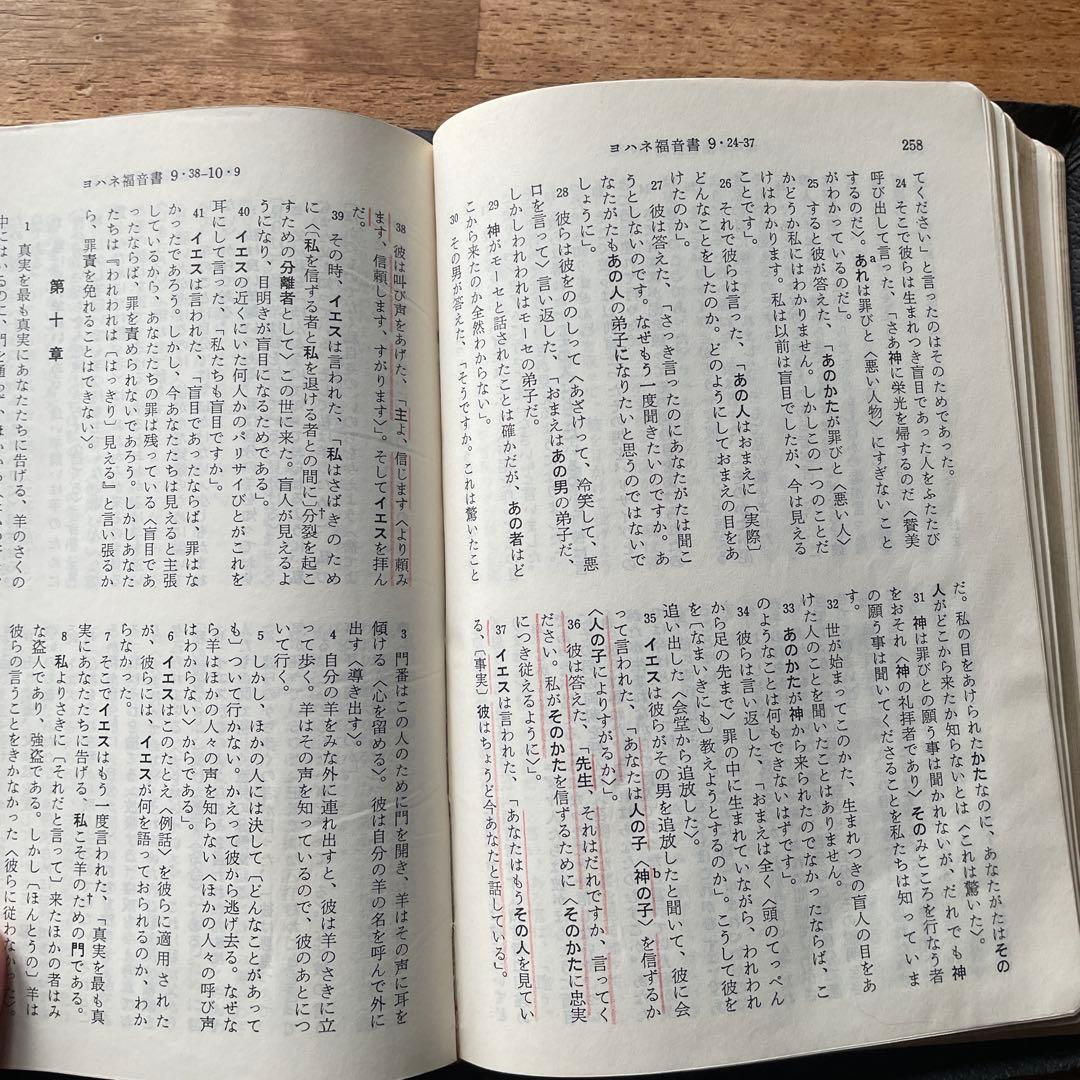 ヨハネ福音書 9・24-37
258
てください」と言ったのはそのためであった。
24 そこで彼らは生まれつき盲目であった人をふたたび
呼び出して言った、「さあ神に栄光を帰するのだ〈賛美
するのだ〉。aあれは罪びと〈悪い人物〉にすぎないこと
がわかっているのだ」。
25 すると彼が答えた、「あのかたが罪びと〈悪い人〉
かどうか私にはわかりません。しかしこの一つのことだ
けはわかります。私は以前は盲目でしたが、今は見える
ことです」。
26 それで彼らは言った、「あの人はおまえに〔実際〕
どんなことをしたのか。どのようにしておまえの目をあ
けたのか」。
27 彼は答えた、「さっき言ったのにあなたがたは聞こ
うとしないのです。なぜもう一度聞きたいのですか。あ
なたがたもあの人の弟子になりたいと思うのではないで
しょうに」。
28 彼らは彼をののしって〈あざけって、冷笑して、悪
口を言って〉言い返した、「おまえはあの男の弟子だ、
しかしわれわれはモーセの弟子だ。
29 神がモーセと話されたことは確かだが、あの者はど
こから来たのか全然わからない」。
30 その男が答えた、「そうですか。これは驚いたこと
だ。私の目をあけられたかたなのに、あなたがたはその
人がどこから来たか知らないとは〈これは驚いた〉。
31 神は罪びとの願う事は聞かれないが、だれでも神
をおそれ〈神の礼拝者であり〉そのみこころを行なう者
の願う事は聞いてくださることを私たちは知っていま
す。
32 世が始まってこのかた、生まれつきの盲人の目をあ
けた人のことを聞いたことはありません。
33 あのかたが神から来られたのでなかったならば、こ
のようなことは何もできないはずです」。
34 彼らは言い返した、「おまえは全く〈頭のてっぺん
から足の先まで〉罪の中に生まれていながら、われわれ
を〔なまいきにも〕教えようとするのか」。こうして彼を
追い出した〈会堂から追放した〉。
35 イエスは彼らがその男を追放したと聞いて、彼に会
って言われた、「あなたは人の子〈b神の子〉を信ずるか
〈人の子によりすがるか〉」。
36 彼は答えた、「先生、それはだれですか、言ってく
ださい。私がそのかたを信ずるために〈そのかたに忠実
につき従えるように〉」。
37 イエスは言われた、「あなたはもうその人を見てい
る、〔事実〕彼はちょうど今あなたと話している」。
ヨハネ福音書 9・38-10・9
38 彼は叫び声をあげた、「主よ、信じます〈より頼み
ます、信頼します、すがります〉」。そしてイエスを拝ん
だ。
39 その時、イエスは言われた、「私はさばきのため
に〈〔私を信ずる者と私を退ける者との間に〕†分裂を起こ
すための分離者として〉この世に来た。盲人が見えるよ
うになり、目明きが盲目になるためである」。
40 イエスの近くにいた何人かのパリサイびとがこれを
耳にして言った、「私たちも盲目ですか」。
41 イエスは言われた、「盲目であったならば、罪はな
かったであろう。しかし、今あなたたちは見えると主張
しているから、あなたたちの罪は残っている〈盲目であ
ったならば、罪を責められないであろう。しかしあなた
たちは『われわれは〔はっきり〕見える』と言い張るか
ら、罪責を免れることはできない〉。
第十章
1 真実を最も真実にあなたたちに告げる、羊のさくの
3 門番はこの人のために門を開き、羊はその声に耳を
傾ける〈心を留める〉。彼は自分の羊の名を呼んで外に
出す〈導き出す〉。
4 自分の羊をみな外に連れ出すと、彼は羊のさきに立
って歩く。羊はその声を知っているので、彼のあとにつ
いて行く。
5 しかし、ほかの人には決して〔どんなことがあって
も〕ついて行かない。かえって彼から逃げ去る。なぜな
ら羊はほかの人々の声を知らない〈ほかの人々の呼び声
はわからない〉からである」。
6 イエスはこのたとえ〈例話〉を彼らに適用された
が、彼らには、イエスが何を語っておられるのか、わか
らなかった。
7 そこでイエスはもう一度言われた、「真実を最も真
実にあなたたちに告げる、私こそ羊のための†門である。
8 私よりさきに〔それだと言って〕来たほかの者はみ
な盗人であり、強盗である。しかし〔ほんとうの〕羊は
彼らの言うことをきかなかった〈彼らに従わな